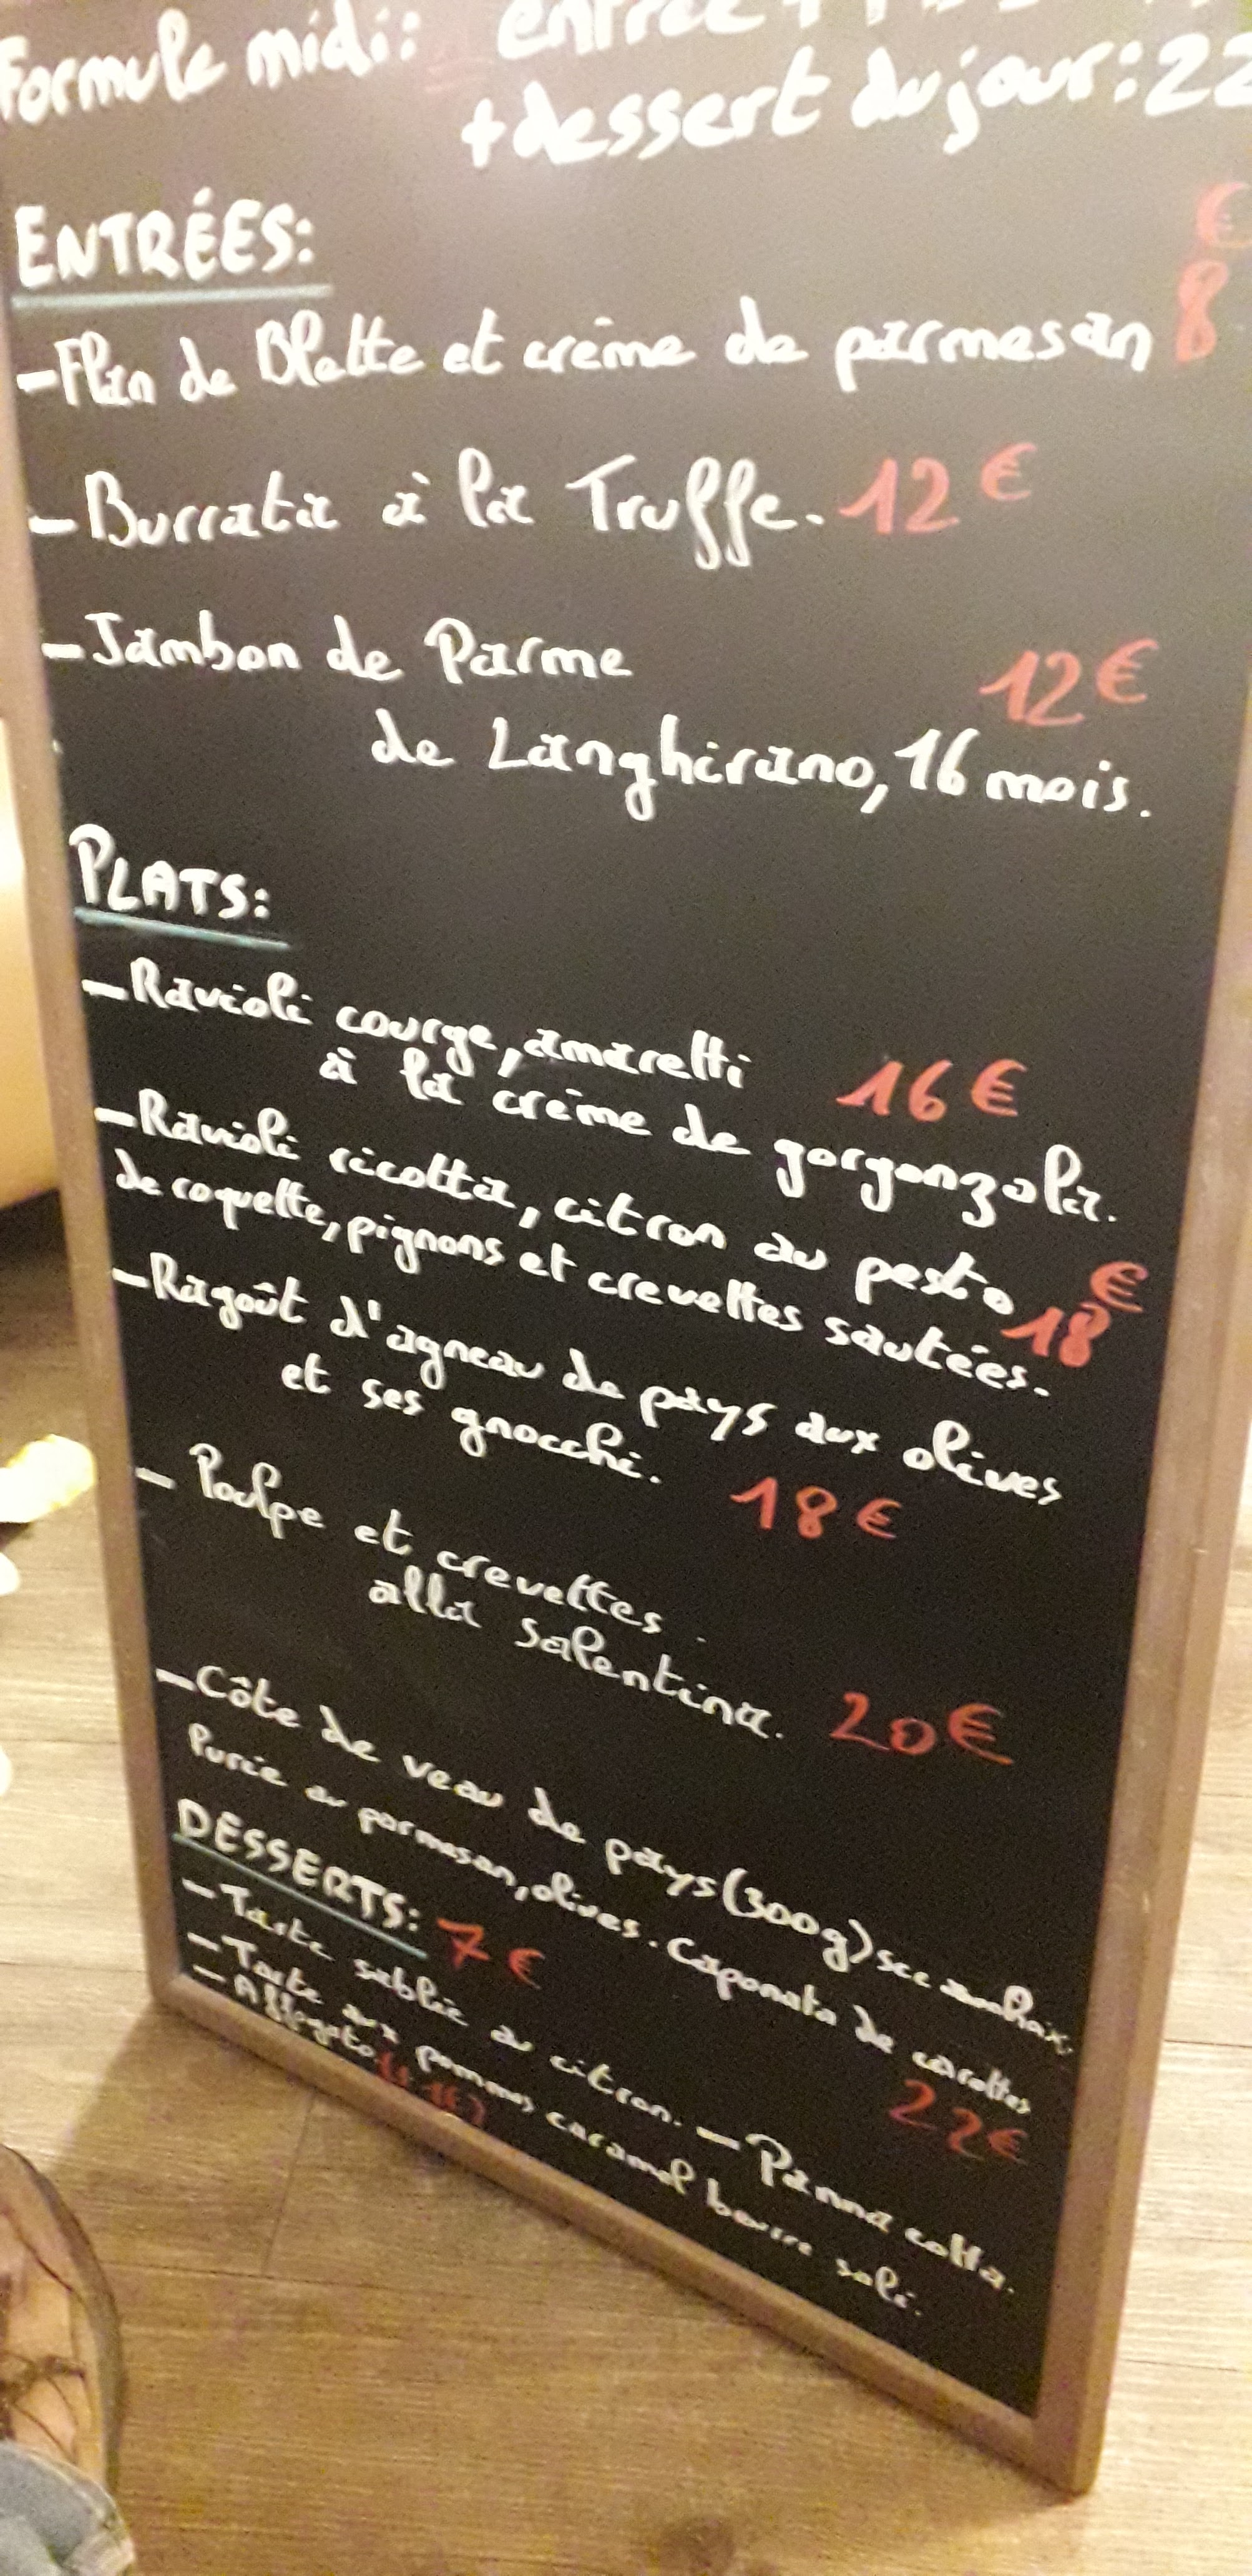 Formule midi: entrée +
+dessert du jour: 22
ENTRÉES:
-Flan de Blette et crème de parmesan 8 €
-Burrata à la Truffe. 12 €
-Jambon de Parme 12 €
de Langhirano, 16 mois.
PLATS:
-Ravioli courge, amaretti 16 €
à la crème de gorgonzola.
-Ravioli ricotta, citron au pesto
de roquette, pignons et crevettes sautées. 18 €
-Ragoût d'agneau de pays aux olives
et ses gnocchi. 18 €
- Poulpe et crevettes
alla salentina. 20 €
-Côte de veau de pays (300g)
Purée au parmesan, olives. Caponata de carottes
22 €
DESSERTS: 7 €
-Tarte sablée au citron. - Panna cotta.
-Tarte aux pommes caramel beurre salé.
-Affogato